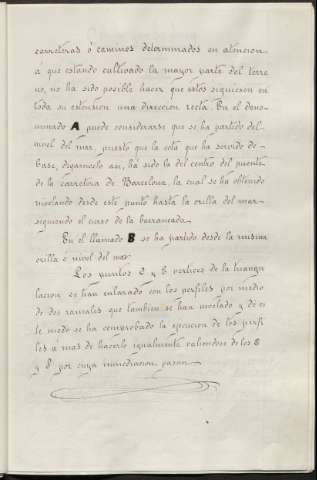 carreteras ó caminos determinados en atencion
á que estando cultivado la mayor parte del terre
no, no ha sido posible hacer que estos siguiesen en
toda su estension una direccion recta. En el deno-
minado A puede considerarse que se ha partido del
nivel del mar, puesto que la cota que ha servido de
base, digamoslo asi, há sido la del centro del puente
de la carretera de Barcelona, la cual se ha obtenido
nivelando desde este punto hasta la orilla del mar
siguiendo el curso de la barrancada.
En el llamado B se ha partido desde la misma
orilla ó nivel del mar.
Los puntos 2 y 6 vertices de la triangu
lacion se han enlazado con los perfiles por medio
de dos ramales que tambien se han nivelado y de es
te modo se ha comprobado la ejecucion de los perfi
les á mas de hacerlo igualmente valiendose de los 6
y 8 por cuya inmediacion pasan.